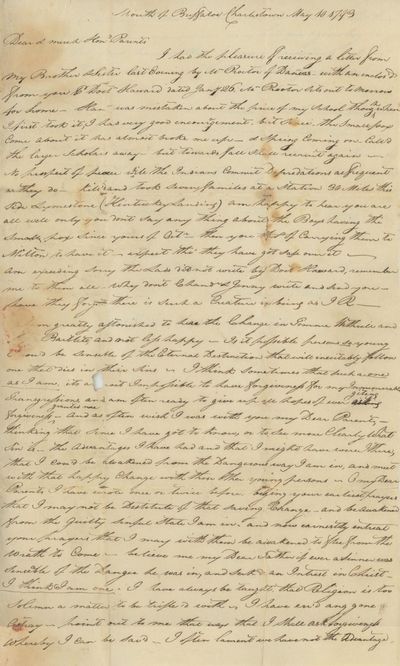 Mouth of Buffaloe Charlestown May 10 1793
Dear & much Hond Parents
I had the pleasure of receiving a letter from
My Brother Lester last Evening by Mr Rector of Danvers with an enclosd
from you & Doct Howard dated Jany 26. Mr Rector sets out to Morrow
for home — Stan was mistaken about the price of my School tho when
I first took it, I had very good encouragement. but since the Small pox
Come about it has almost broke me up — & Spring Coming on Calld
the large Scholars away — but towards fall I shall recruit again —
No prospect of peace — the Indians Commit Depridations as frequent
as they do — killd and took Seven families at a Station 20 Miles this
Side Lymestone (Kentucky Landing) am happy to hear you are
all well only you dont Say any thing about the Boys having the
Small pox Since yours of Octr then you of Carrying them to
Milton to have it — expect tho they have got safe over it —
Am exceeding Sorry the Lads did not write by Doct Howard, remember
me to them all — Why dont Chand & Jenny write and Send you
have they forgot there is such a Creature in being as I —
I am greatly astonished to hear the Change in and
Bartlett and not less happy — Is it possible persons so young
Could be Sensible of the Eternal Destruction that will inevitably follow
one that dies in their Sins — I think Sometimes that such a one
as I am, it is almost Impossible to have forgiveness for my Innumerable
Transgressions and am often ready to give up all hopes of
forgiveness — And as often wish I was with you my Dear Parents,
thinking that Since I have got to know, or to see more Clearly What
Sin is — the Advantages I have had and that I might have were I there,
that I could be Awakened from the Dangerous way I am in, and meet
with that happy Change with those other young persons — My Dear
Parents I have wrote once or twice before begging your earliest prayers
that I may not be Destitute of that Saving Change — and be awakened
from the Guilty Sinful State I am in, and now earnestly entreat
your prayers that I may with them be awakened to flee from the
Wrath to Come — believe me my Dear Father if ever a Sinner was
Sensible of the Danger he was in, and Seek an Interest in Christ
I think I am one. I have always be taught, that Religeon is too
Solemn a matter to be trifled with, & I have errd and gone
Astray — point out to me that way that I Shall ask forgiveness
Whereby I can be Savd — I often lament we have not the Advantage